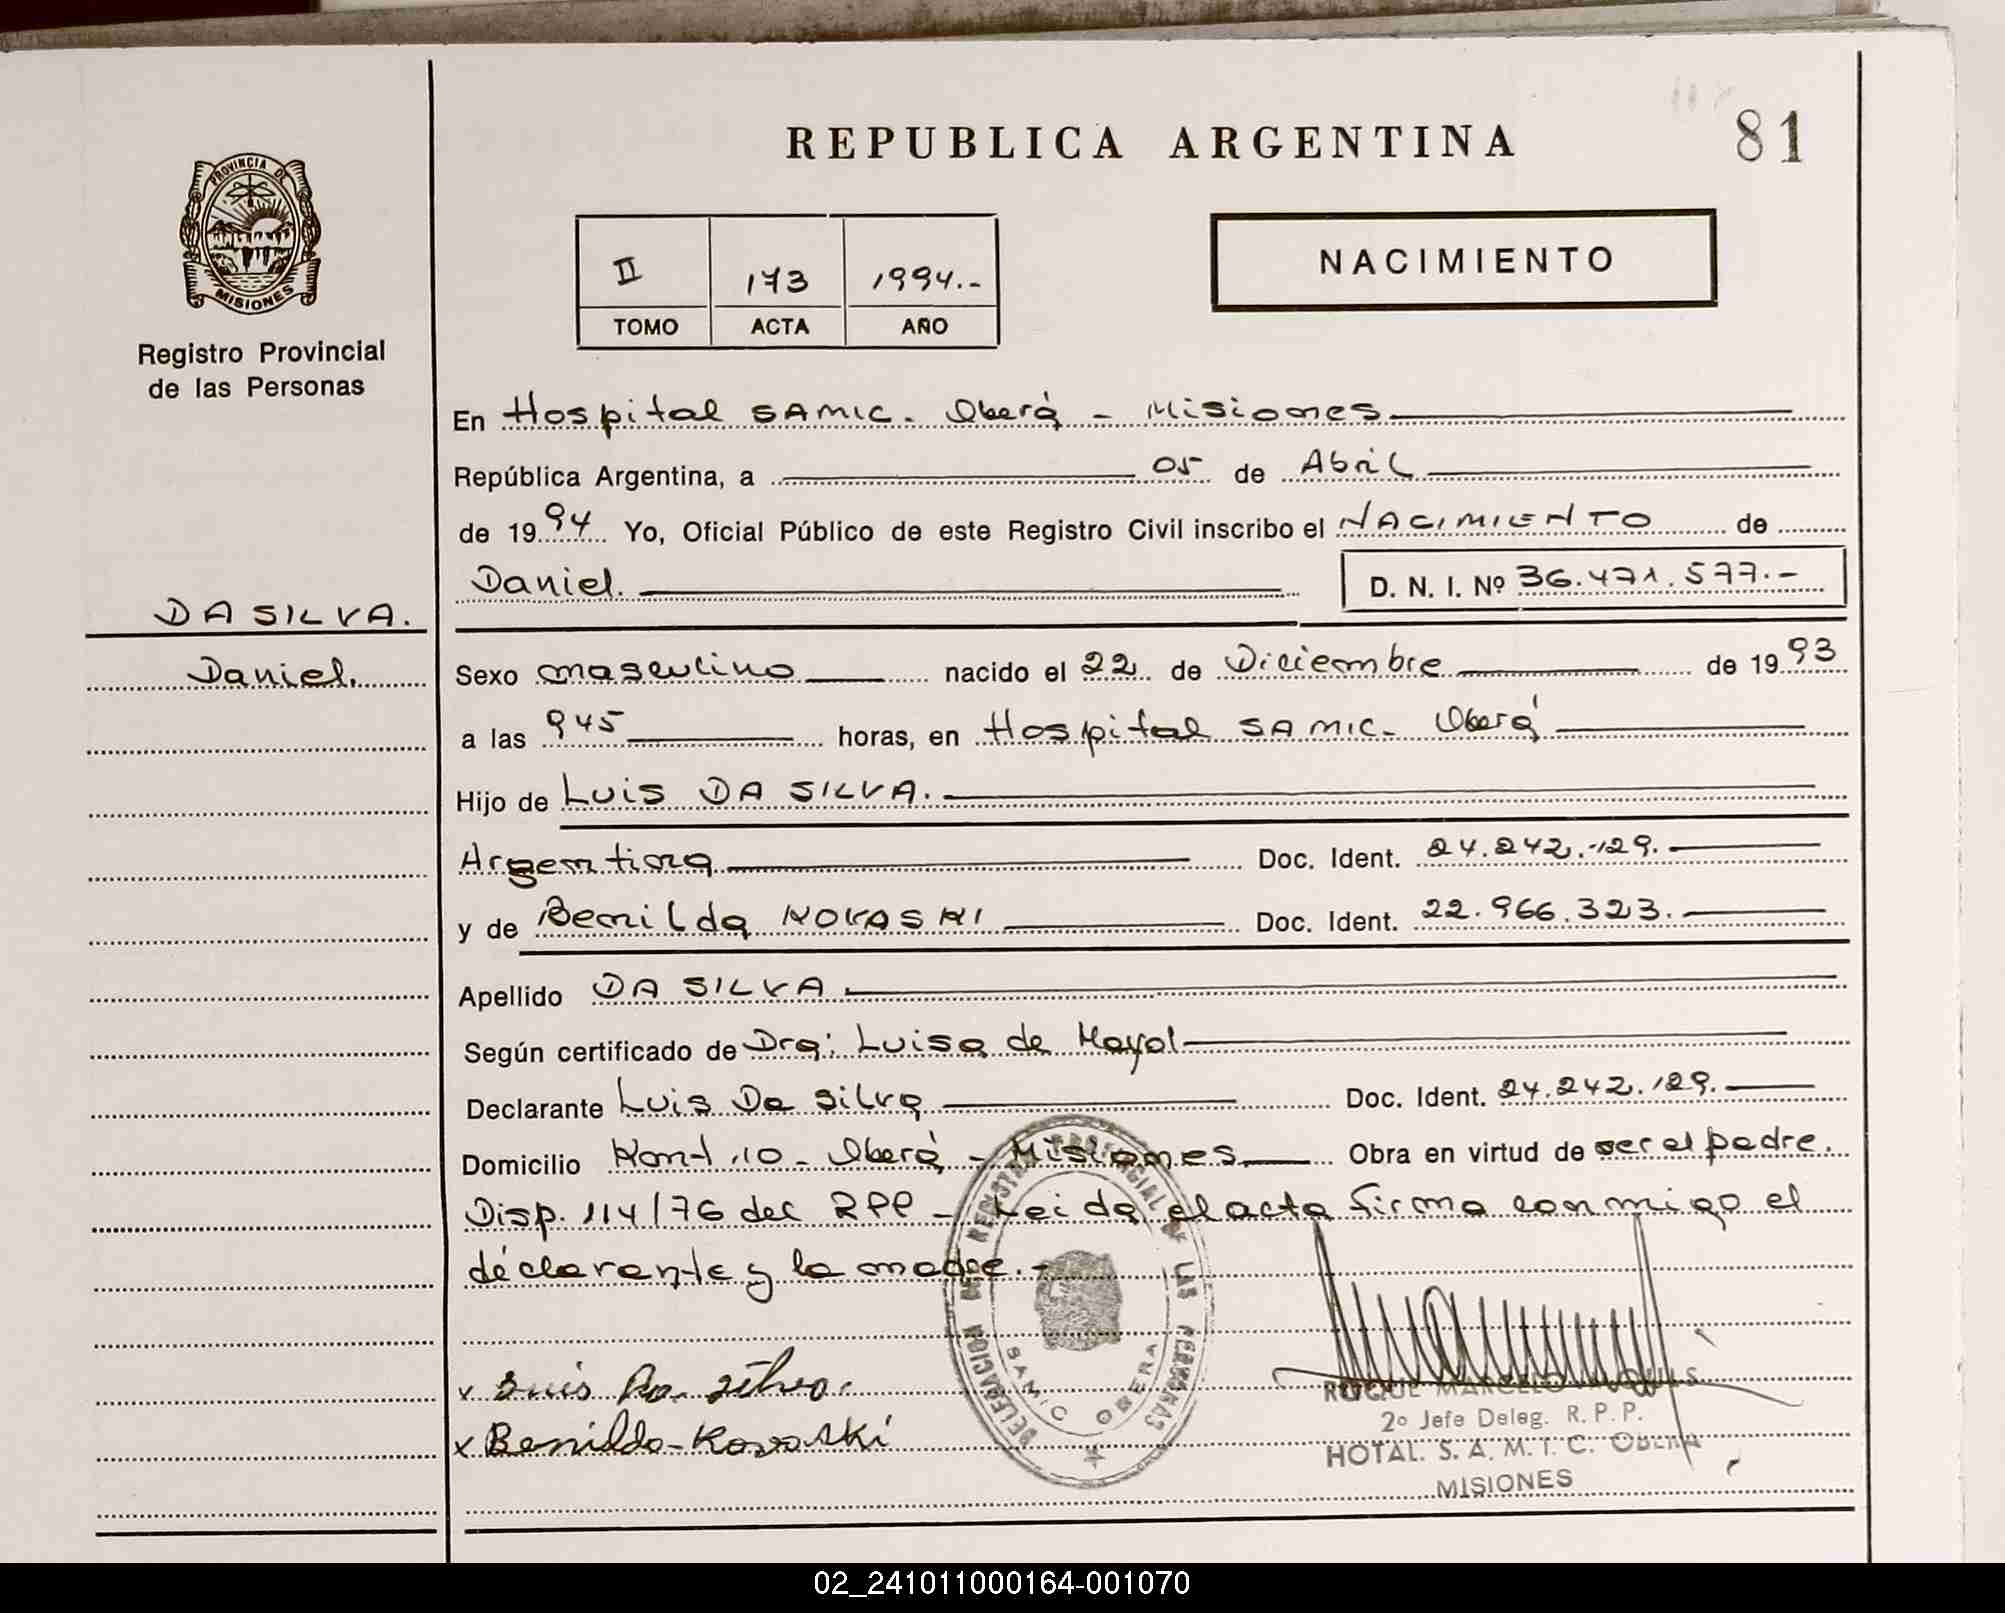 REPUBLICA ARGENTINA
81
PROVINCIA DE
MISIONES
Registro Provincial
de las Personas
II 173 1994.-
TOMO ACTA AÑO
NACIMIENTO
En Hospital SAMIC. Oberá - Misiones
República Argentina, a 05 de Abril
de 1994 Yo, Oficial Público de este Registro Civil inscribo el NACIMIENTO de
Daniel. D. N. I. Nº 36.471.577.-
DA SILVA.
Daniel.
Sexo masculino nacido el 22 de Diciembre de 1993
a las 945 horas, en Hospital SAMIC. Oberá
Hijo de Luis DA SILVA.
Argentina Doc. Ident. 24.242.129.
y de Benilda KOVASKI Doc. Ident. 22.966.323.
Apellido DA SILVA
Según certificado de Dra: Luisa de Mayol
Declarante Luis Da Silva Doc. Ident. 24.242.129.
Domicilio Km 110 - Oberá - Misiones Obra en virtud de ser el padre.
Disp. 114/76 del RPP - Leida el acta firma conmigo el
declarante y la madre.-
x Luis Da Silva.
x Benilda Kovaski
DELEGACION DEL REGISTRO PROVINCIAL DE LAS PERSONAS
SAMIC OBERA
ROQUE MARCELO
2º Jefe Deleg. R. P. P.
HOTAL. S. A. M. I. C. OBERA
MISIONES
02_241011000164-001070